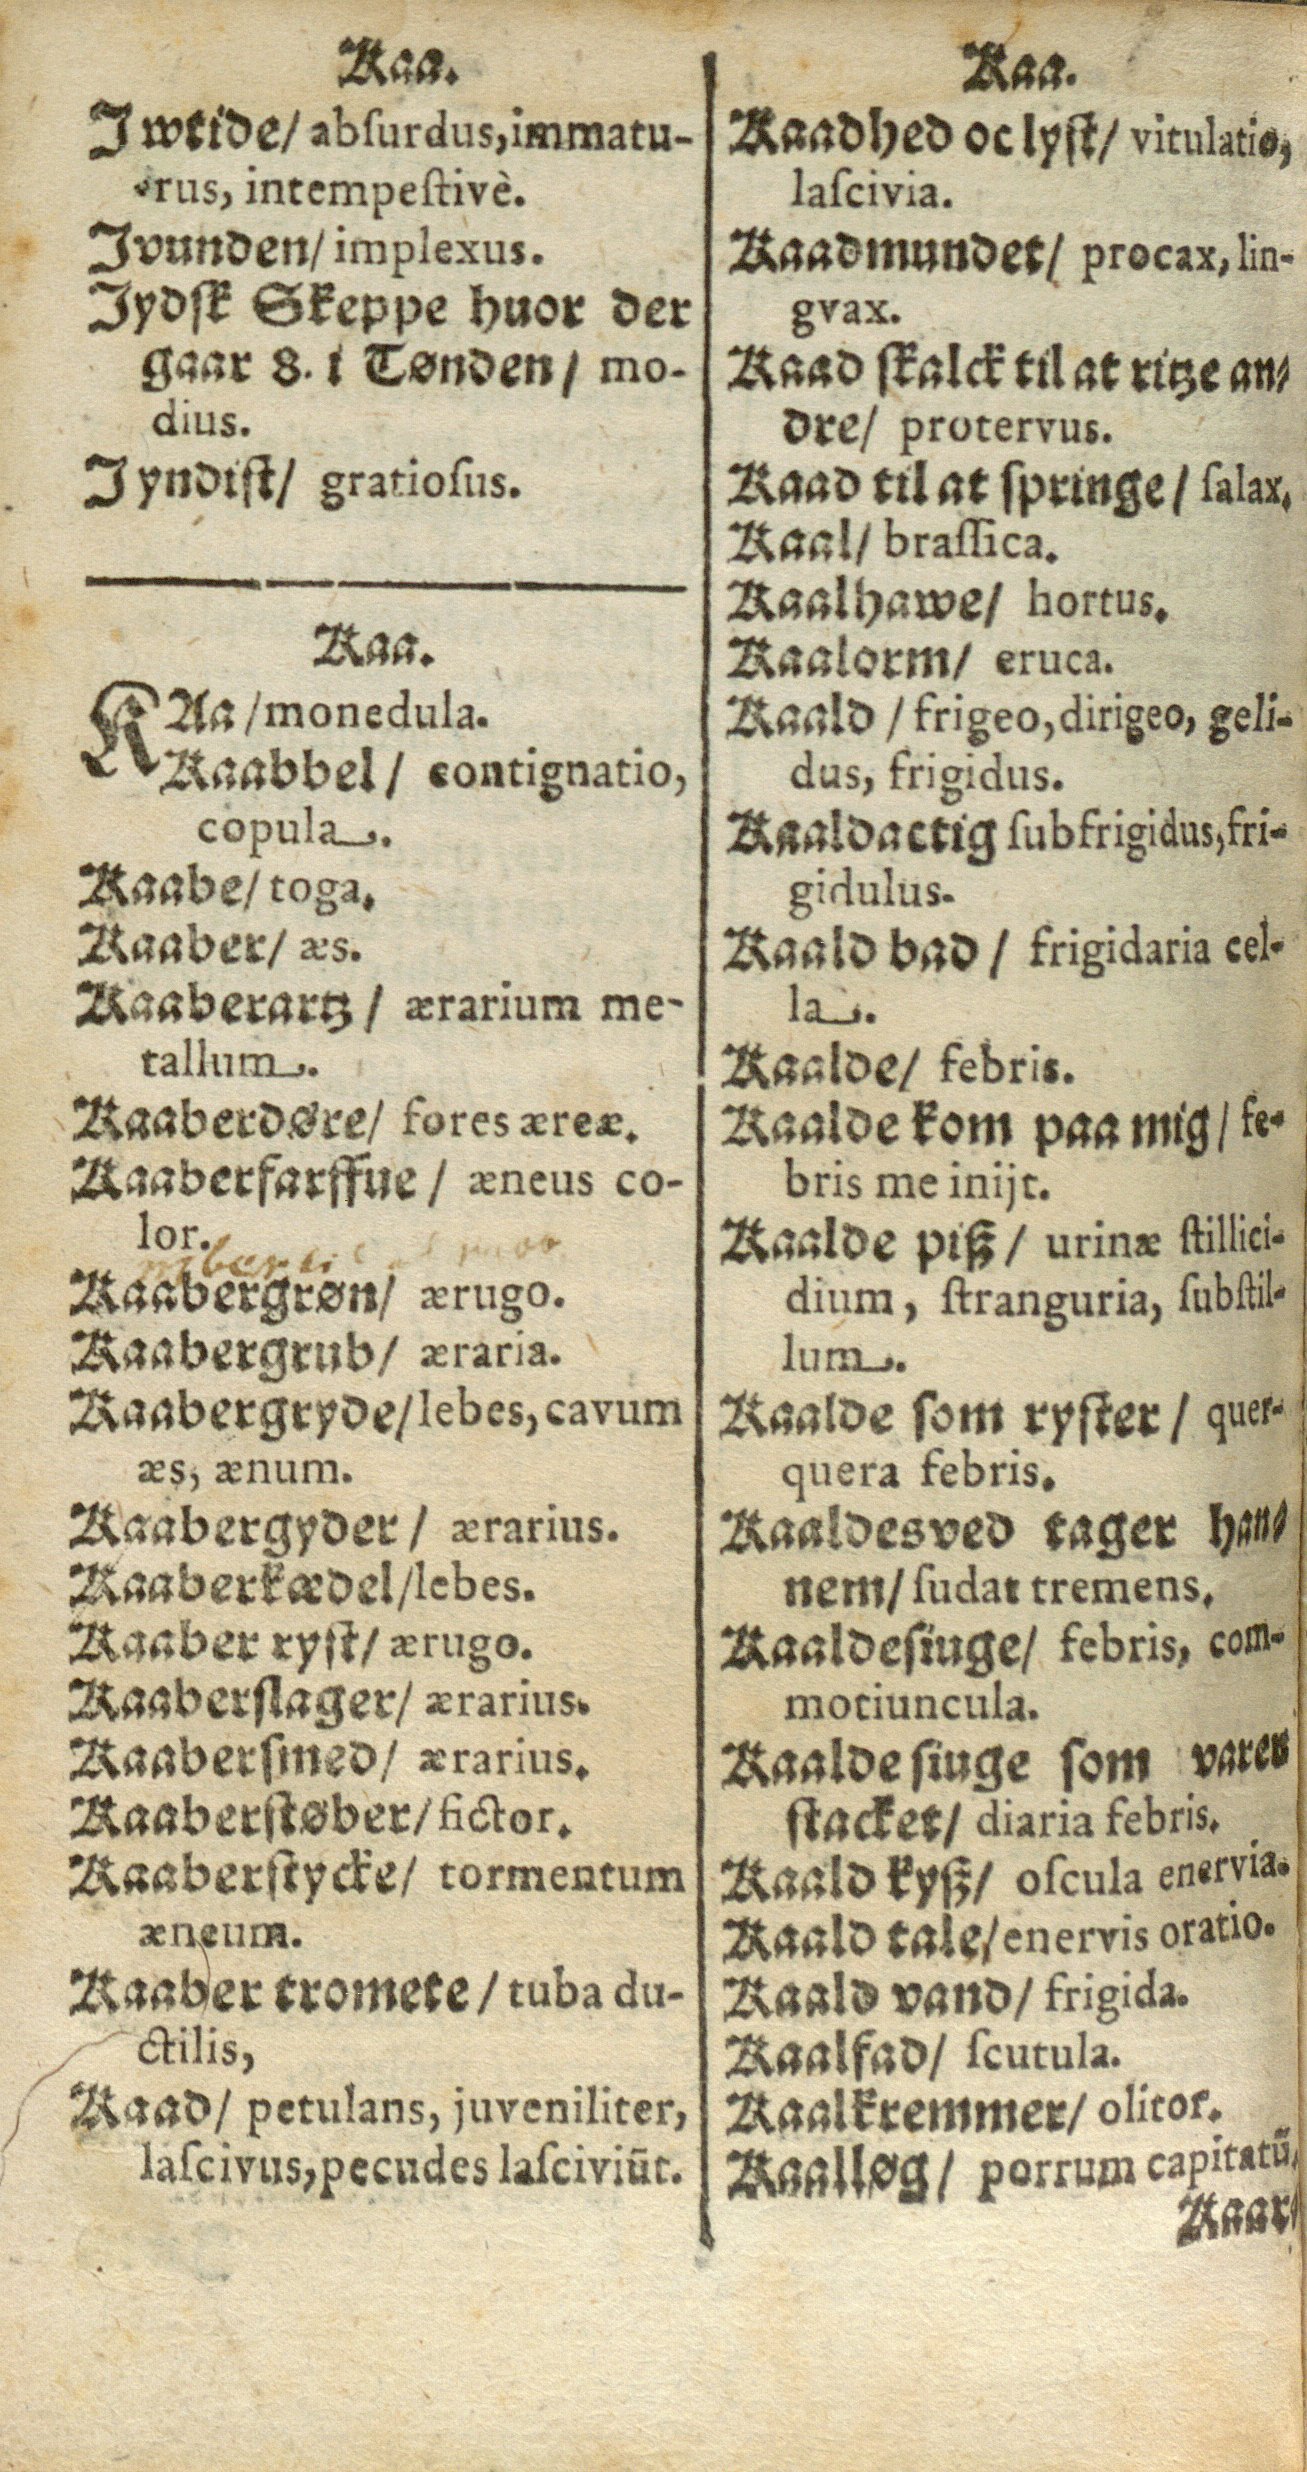 Kaa.
J wtide/ abſurdus,immatu-
rus, intempeſtivè.
Jvunden/ implexus.
Jydſk Skeppe huor der
gaar 8. i Tønden/ mo-
dius.
Jyndiſt/ gratioſus.
Kaa.
KAa/monedula.
Kaabbel/ contignatio,
copula.
Kaabe/ toga.
Kaaber/ æs.
Kaaberartz/ ærarium me-
tallum.
Kaaberdøre/ fores æreæ.
Kaaberfarffue/ æneus co-
lor.
Kaabergrøn/ ærugo.
Kaabergrub/ æraria.
Kaabergryde/lebes, cavum
æs, ænum.
Kaabergyder/ ærarius.
Kaaberkædel/lebes.
Kaaber ryſt/ ærugo.
Kaaberſlager/ ærarius.
Kaaberſmed/ ærarius.
Kaaberſtøber/ fictor.
Kaaberſtycke/ tormentum
æneum.
Kaaber tromete/ tuba du-
ctilis,
Kaad/ petulans, juveniliter,
laſcivus,pecudes laſciviūt.
Kaa.
Kaadhed oc lyſt/ vitulatio,
laſcivia.
Kaadmundet/ procax, lin-
gvax.
Kaad ſkalck til at ritze an/
dre/ protervus.
Kaad til at ſpringe/ ſalax.
Kaal/ braſſica.
Kaalhawe/ hortus.
Kaalorm/ eruca.
Kaald/ frigeo,dirigeo, geli-
dus, frigidus.
Kaaldactig ſubfrigidus,fri-
gidulus.
Kaald bad/ frigidaria cel-
la.
Kaalde/ febris.
Kaalde kom paa mig/ fe-
bris me inijt.
Kaalde piß/ urinæ ſtillici-
dium, ſtranguria, ſubſtil-
lum.
Kaalde ſom ryſter/ quer-
quera febris.
Kaaldesved tager han/
nem/ ſudat tremens.
Kaaldeſiuge/ febris, com-
motiuncula.
Kaalde ſiuge ſom varer
ſtacket/ diaria febris.
Kaald kyß/ oſcula enervia.
Kaald tale/enervis oratio.
Kaald vand/ frigida.
Kaalfad/ ſcutula.
Kaalkremmer/ olitor.
Kaalløg/ porrum capitatū.
Kaar/